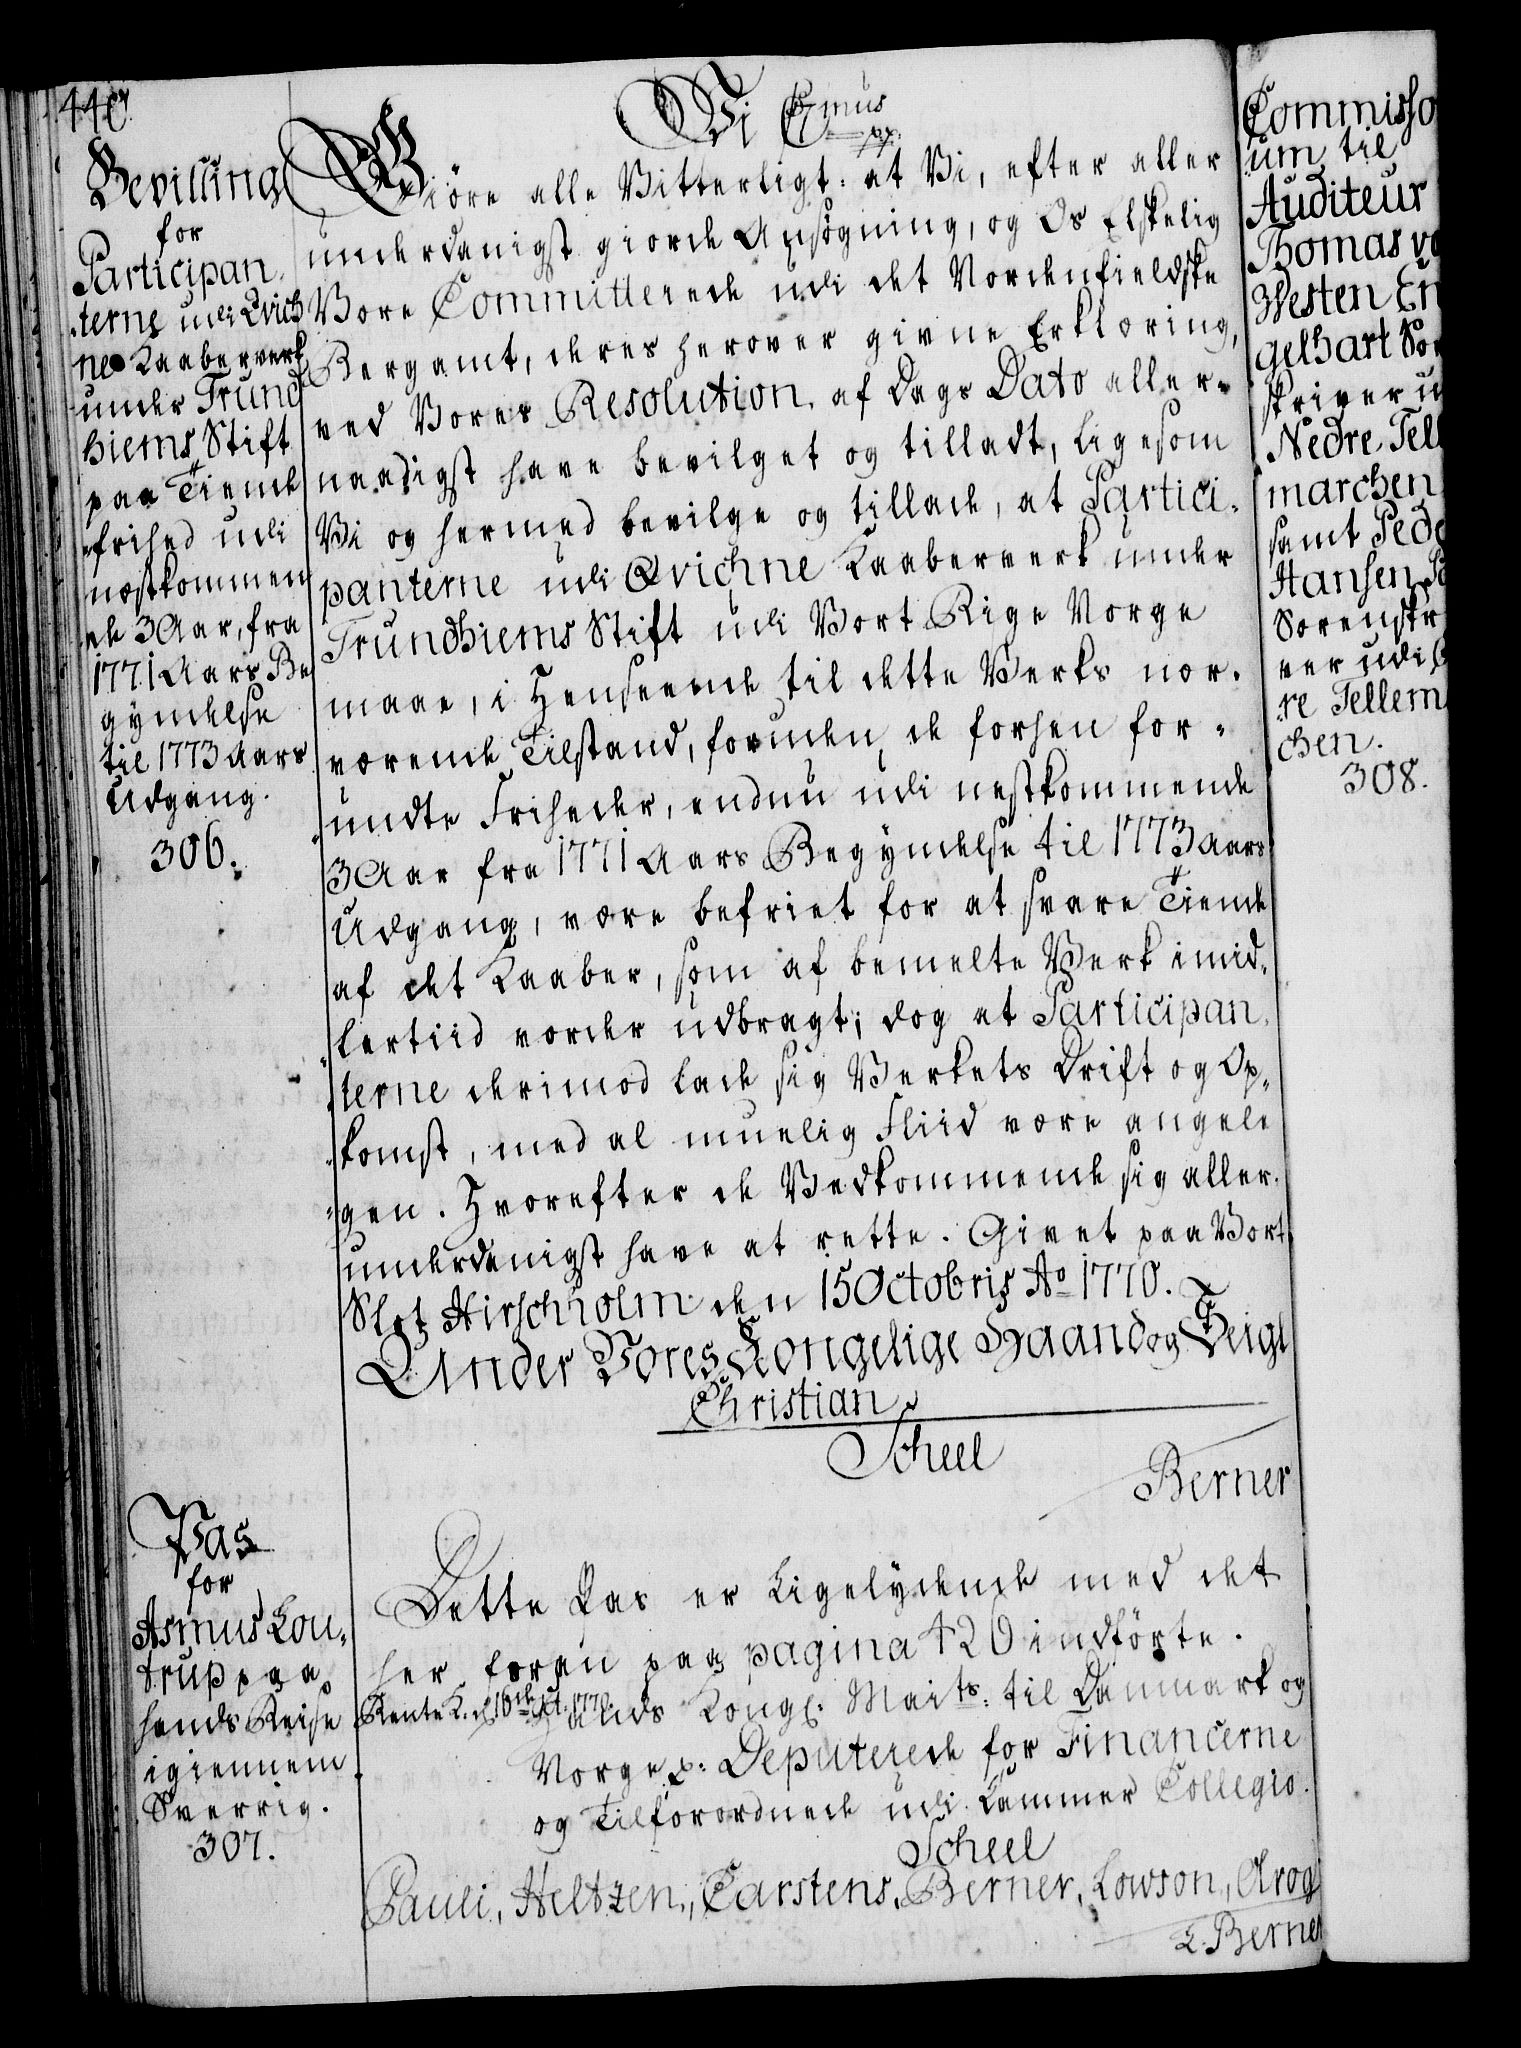 440.
Bevilling
for
Participan,
terne udi Qvich
ne Kaaberverk
under Trund
hiems Stift
paa Tiende
frihed udi
næstkommen
de 3 Aar, fra
1771 Aars Be
gyndelse
til 1773 Aars
Udgang.
306.
Vi C 7mus
pp.
Giöre alle Vitterligt: at Vi, efter aller
underdanigst giorde Ansøgning, og Os Elskelig
Vore Committerede udi det Nordenfieldske
Bergamt, deres herover givne Erklæring,
ved Vores Resolution, af Dags Dato aller-
naadigst have bevilget og tilladt, ligesom
Vi og hermed bevilge og tillade, at Partici,
panterne udi Qvichne Kaaberverk under
Trundhiems Stift udi Vort Rige Norge
maae, i Henseende til dette Verks nær,
værende Tilstand, foruden de forhen for-
undte Friheder, endnu udi nestkommende
3 Aar fra 1771 Aars Begyndelse til 1773 Aars
Udgang, være befriet for at svare Tiende
af det Kaaber, som af bemelte Verk imid,
lertiid vorder udbragt; dog at Participan,
terne derimod lade sig Verkets Drift og Op,
komst, med al muelig Fliid være angele
gen. Hvorefter de Vedkommende sig aller,
underdanigst have at rette. Givet paa Vort
Slot Hirschholm den 15 Octobris Ao 1770.
Under Vores Kongelige Haand og Seigl
Christian
Scheel
Berner
Pas
for
Asmus Lou,
trup paa
hands Reise
igiennem
Sverrig.
307.
Dette Pas er Ligelydende med det
her foran paa pagina 426 indförte.
Rente K. d. 16de Oct. 1770. Hands Kongl. Maits: til Danmark og
Norge p: Deputerede for Financerne
og Tilforordnede udi Kammer Collegio.
Scheel
Pauli, Heltzen, Carstens, Berner, Lowson, Arog
L. Berner
Commisso
um til
Auditeur
Thomas vo
Westen En
gelhart Sor
skriver u
Nedre Tell
marchen
samt Pede
Hansen
Sorenskr
ver udi
re Tellem
chen.
308.